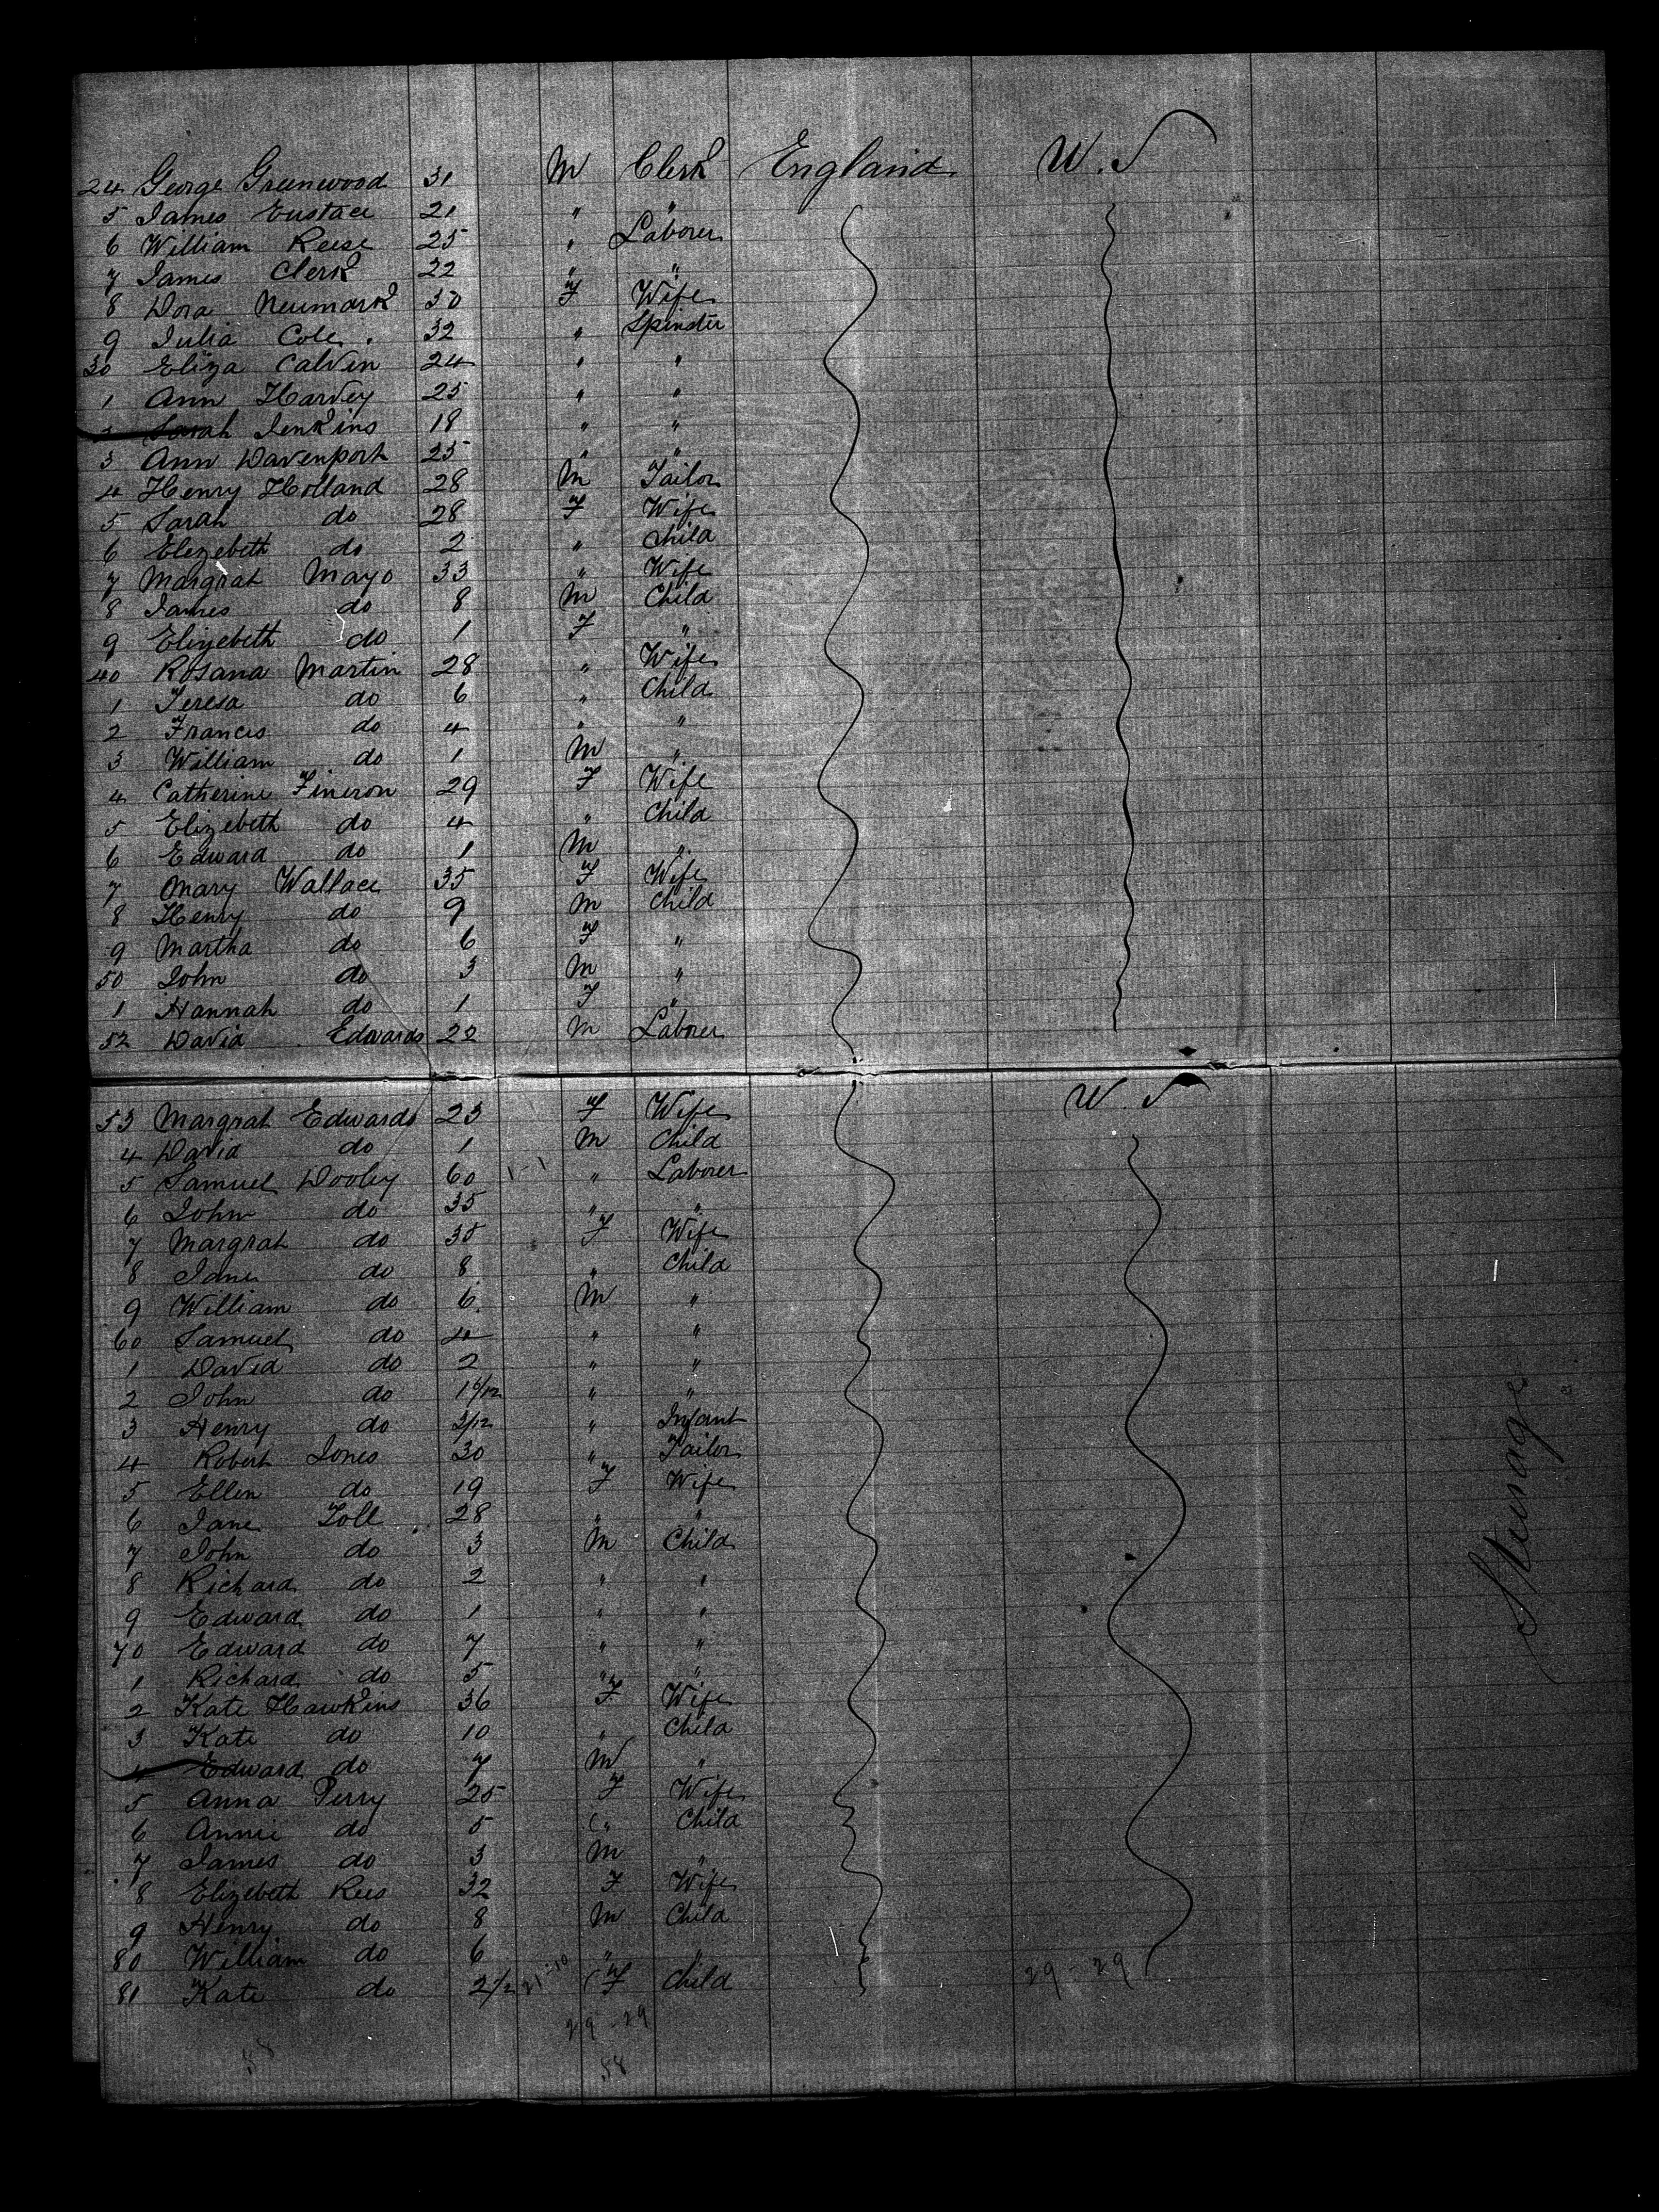 24 George Greenwood 31 M Clerk England U.S
5 James Eustace 21 " "
6 William Reese 25 " Laborer
7 James Clerk 22 " "
8 Dora Neumark 30 F Wife
9 Julia Cole . 32 " Spinster
30 Eliza Calvin 24 " "
1 Ann Harvey 25 " "
2 Sarah Jenkins 18 " "
3 Ann Davenport 25 " "
4 Henry Holland 28 M Tailor
5 Sarah do 28 F Wife
6 Elezebeth do 2 " Child
7 Margrat Mayo 33 " Wife
8 James do 8 M Child
9 Elizebeth do 1 F "
40 Rosana Martin 28 " Wife
1 Teresa do 6 " Child
2 Francis do 4 " "
3 William do 1 M "
4 Catherine Fineron 29 F Wife
5 Elizebeth do 4 " Child
6 Edward do 1 M "
7 Mary Wallace 35 F Wife
8 Henry do 9 M Child
9 Martha do 6 F "
50 John do 3 M "
1 Hannah do 1 F "
52 David Edwards 22 M Laborer
53 Margrat Edwards 23 F Wife U.S
4 David do 1 M Child
5 Samuel Dooley 60 " Laborer
6 John do 35 " "
7 Margrat do 35 F Wife
8 Jane do 8 " Child
9 William do 6 M "
60 Samuel do 4 " "
1 David do 2 " "
2 John do 1 6/12 " "
3 Henry do 3/12 " Infant
4 Robert Jones 30 " Tailor
5 Ellen do 19 F Wife
6 Jane Toll 28 " "
7 John do 3 M Child
8 Richard do 2 " "
9 Edward do 1 " "
70 Edward do 7 " "
1 Richard do 5 " "
2 Kate Hawkins 36 F Wife
3 Kate do 10 " Child
4 Edward do 7 M "
5 Anna Perry 25 F Wife
6 Annie do 5 " Child
7 James do 3 M "
8 Elizebeth Rees 32 F Wife
9 Henry do 8 M Child
80 William do 6 " "
81 Kate do 2 1/2 21-10 F Child 29-29
29-29
58 58
Steerage